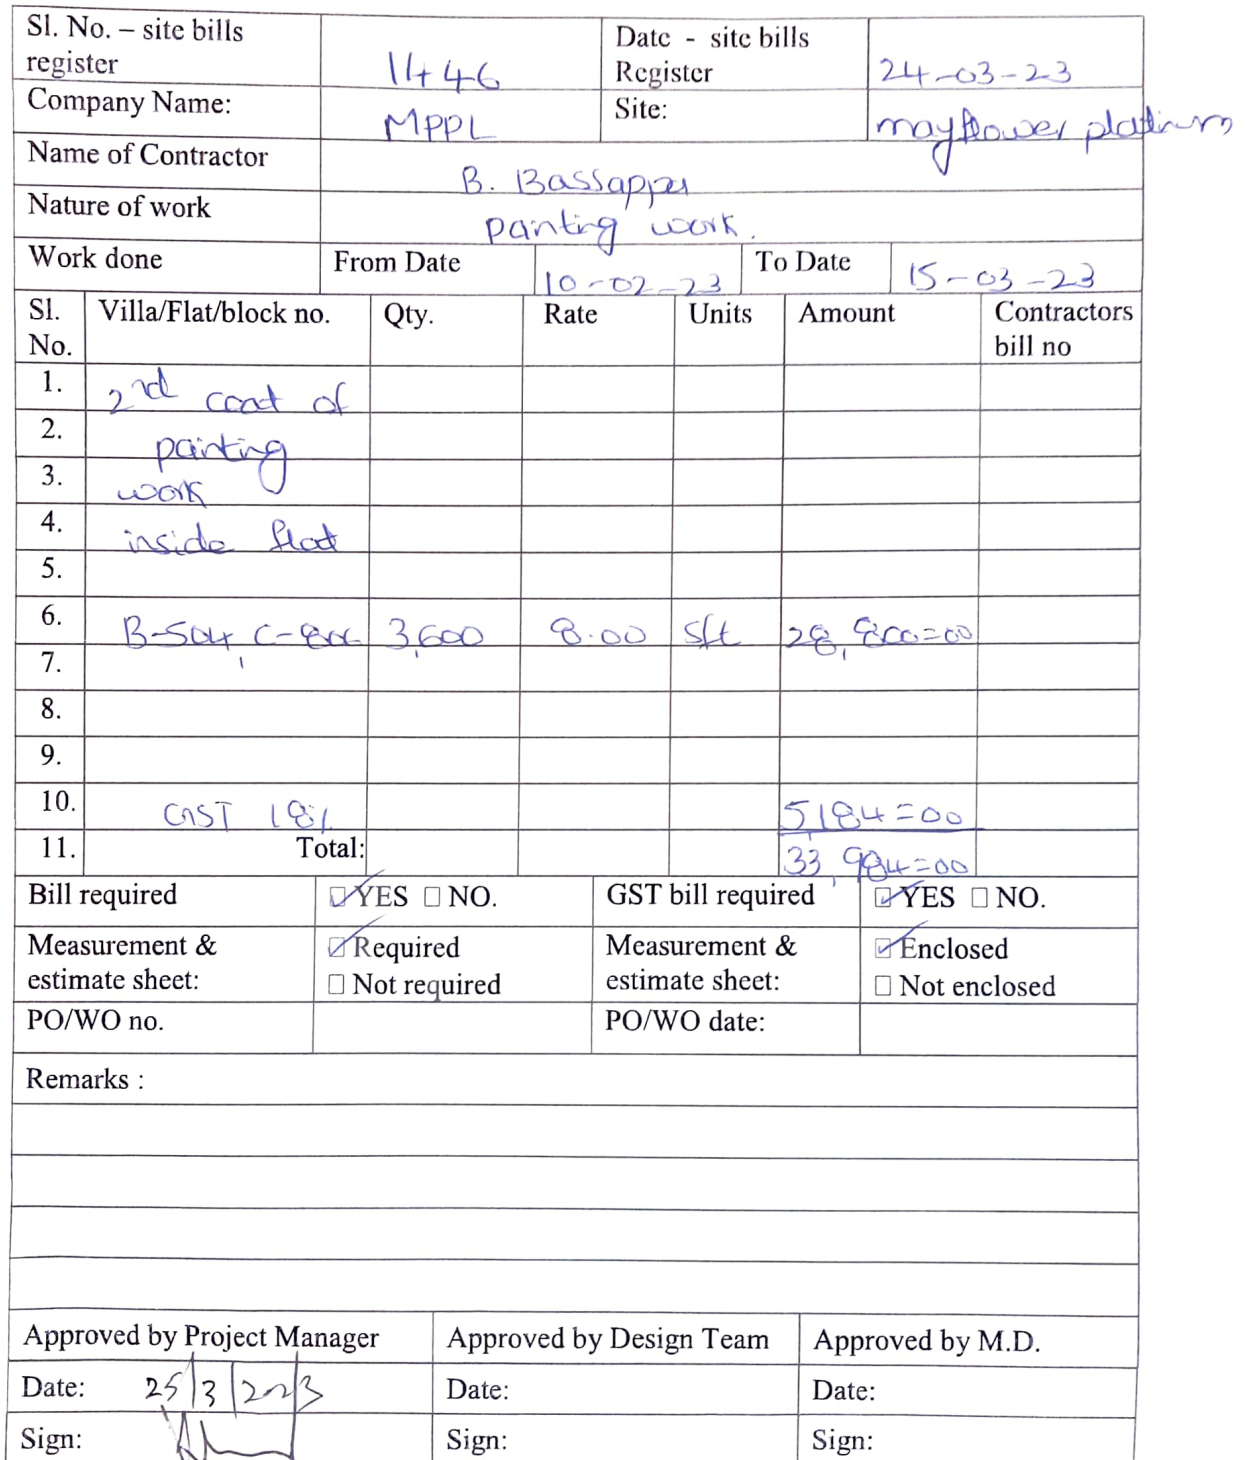 Sl. No. – site bills register 1446 Date - site bills Register 24-03-23
Company Name: MPPL Site: mayflower platinum
Name of Contractor B. Bassappa
Nature of work panting work.
Work done From Date 10-02-23 To Date 15-03-23
Sl. No. Villa/Flat/block no. Qty. Rate Units Amount Contractors bill no
1. 2nd coat of
2. painting
3. work
4. inside flat
5.
6. B-504, C-806 3,600 8.00 sft 28,800=00
7.
8.
9.
10. GST 18% 5,184=00
11. Total: 33,984=00
Bill required ☑ YES ☐ NO. GST bill required ☑ YES ☐ NO.
Measurement & estimate sheet: ☑ Required ☐ Not required Measurement & estimate sheet: ☑ Enclosed ☐ Not enclosed
PO/WO no. PO/WO date:
Remarks :
Approved by Project Manager Approved by Design Team Approved by M.D.
Date: 25/3/2023 Date: Date:
Sign: Sign: Sign: